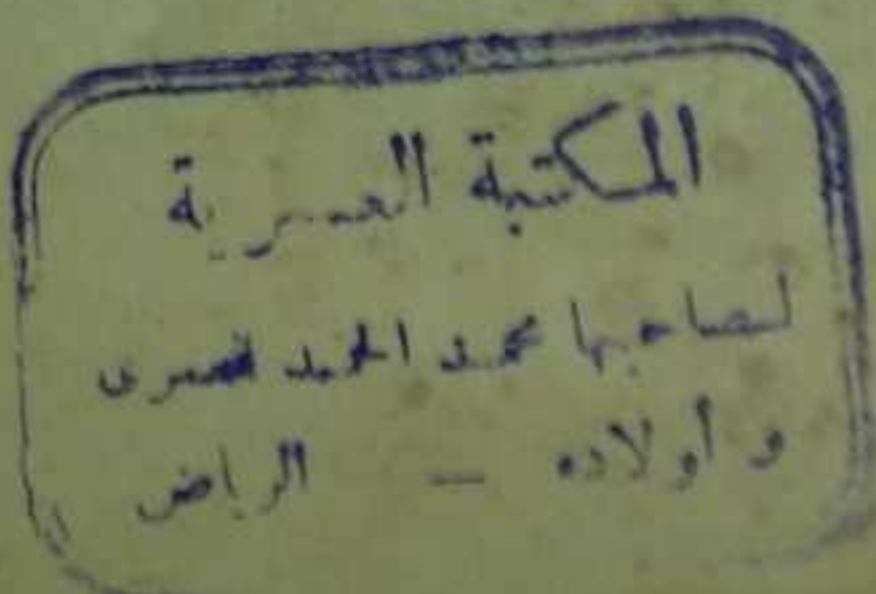 المكتبة العصرية
لصاحبها محمد الحمد
وأولاده – الرياض